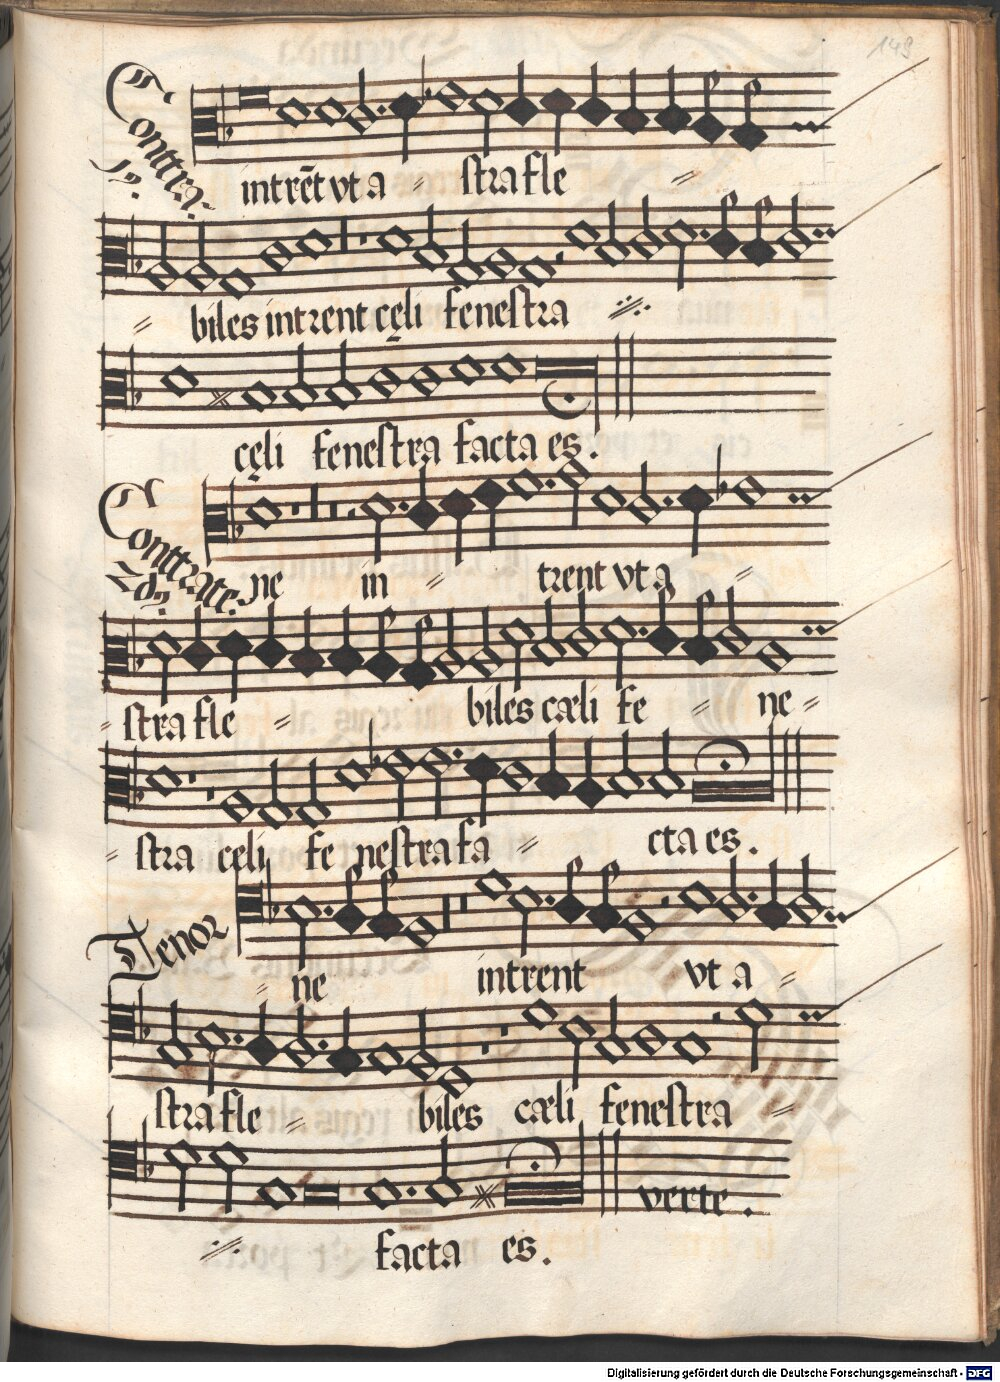 149
Conttra
intrēt vt a = stra fle =
= biles intrent cęli fenestra ://:
cęli fenestra facta es.
Conttrate:
2dꝰ
ne in = trent vt a =
= stra fle = biles cæli fe = ne =
= stra celi fe nestra fa = cta es.
Tenor
= ne intrent vt a =
stra fle = biles cæli fenestra =
verte.
://: facta es.
Digitalisierung gefördert durch die Deutsche Forschungsgemeinschaft - DFG